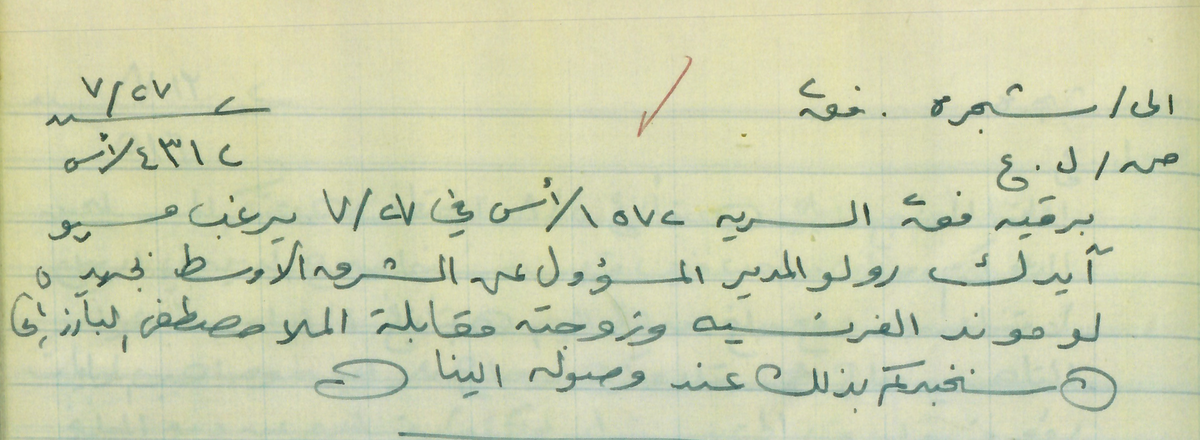 الى/ شجره . فق٢ ٢٧/٧
ص/ ل . ع ٤٣١٢/أس
برقية فق٢ السرية ١٥٧٢/أس في ٢٧/٧ يرغب مسيو
آيدك رولو المدير المسؤول عن الشرق الأوسط بجريدة
لوموند الفرنسيه وزوجته مقابلة الملا مصطفى البارزاني
سنخبركم بذلك عند وصوله الينا